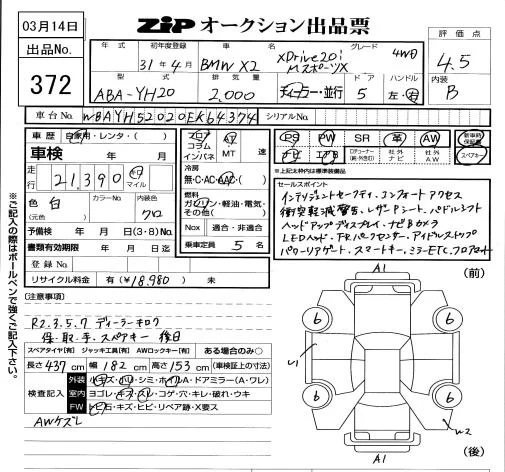 03月14日
出品No.
372
ZIP オークション出品票
年式 初年度登録 車名 グレード
31年4月 BMW X2 xDrive20i MスポーツX 4WD
型式 排気量 ドア ハンドル
ABA-YH20 2,000 ディーラー・並行 5 左・右
評価点
4.5
内装
B
車台No. WBAYH52020EK64374 シリアルNo.
車歴 自家用・レンタ・( )
車検 年 月
走行 21,390 キロ マイル
色 白 カラーNo. 内装色 クロ
(元色)
予備検 年 月 日(3・8)No.
書類有効期限 年 月 日迄
登録No.
リサイクル料金 有(¥18,980) 未
フロア コラム インパネ AT MT 速
冷房 無・C・AC・AAC・( )
燃料 ガソリン・軽油・電気・その他( )
Nox 適合・非適合
乗車定員 5 名
PS PW SR 革 AW 新車時保証書
ナビ エアB 社外ナビ 社外AW スペアキー
※上記太枠内は標準装備品
セールスポイント
インテリジェントセーフティ、コンフォートアクセス
衝突軽減警告、レザーシート、パドルシフト
ヘッドアップディスプレイ、ナビBカメラ
LEDヘッド、FRパークセンサー、アイドルストップ
パワーリアゲート、スマートキー、ミラーETC、フロアマット
(注意事項)
R2.3.5.7 ディーラーキロク
保、取、手、スペアキー 後日
スペアタイヤ[有] ジャッキ工具[有] AWロックキー[有] ある場合のみ○
長さ437cm 幅182cm 高さ153cm (車検証上の寸法)
検査記入
外装 小キズ・凹・シミ・ホイルA・ドアミラー(A・ワレ)
室内 ヨゴレ・キズ・スレ・コゲ・穴・キレ・破れ・ウキ
FW トビ石・キズ・ヒビ・リペア跡・X要ス
AWケズレ
A1 (前)
6 6
U1
6 6
W2
A1 (後)
※ご記入の際はボールペンで強くご記入下さい。